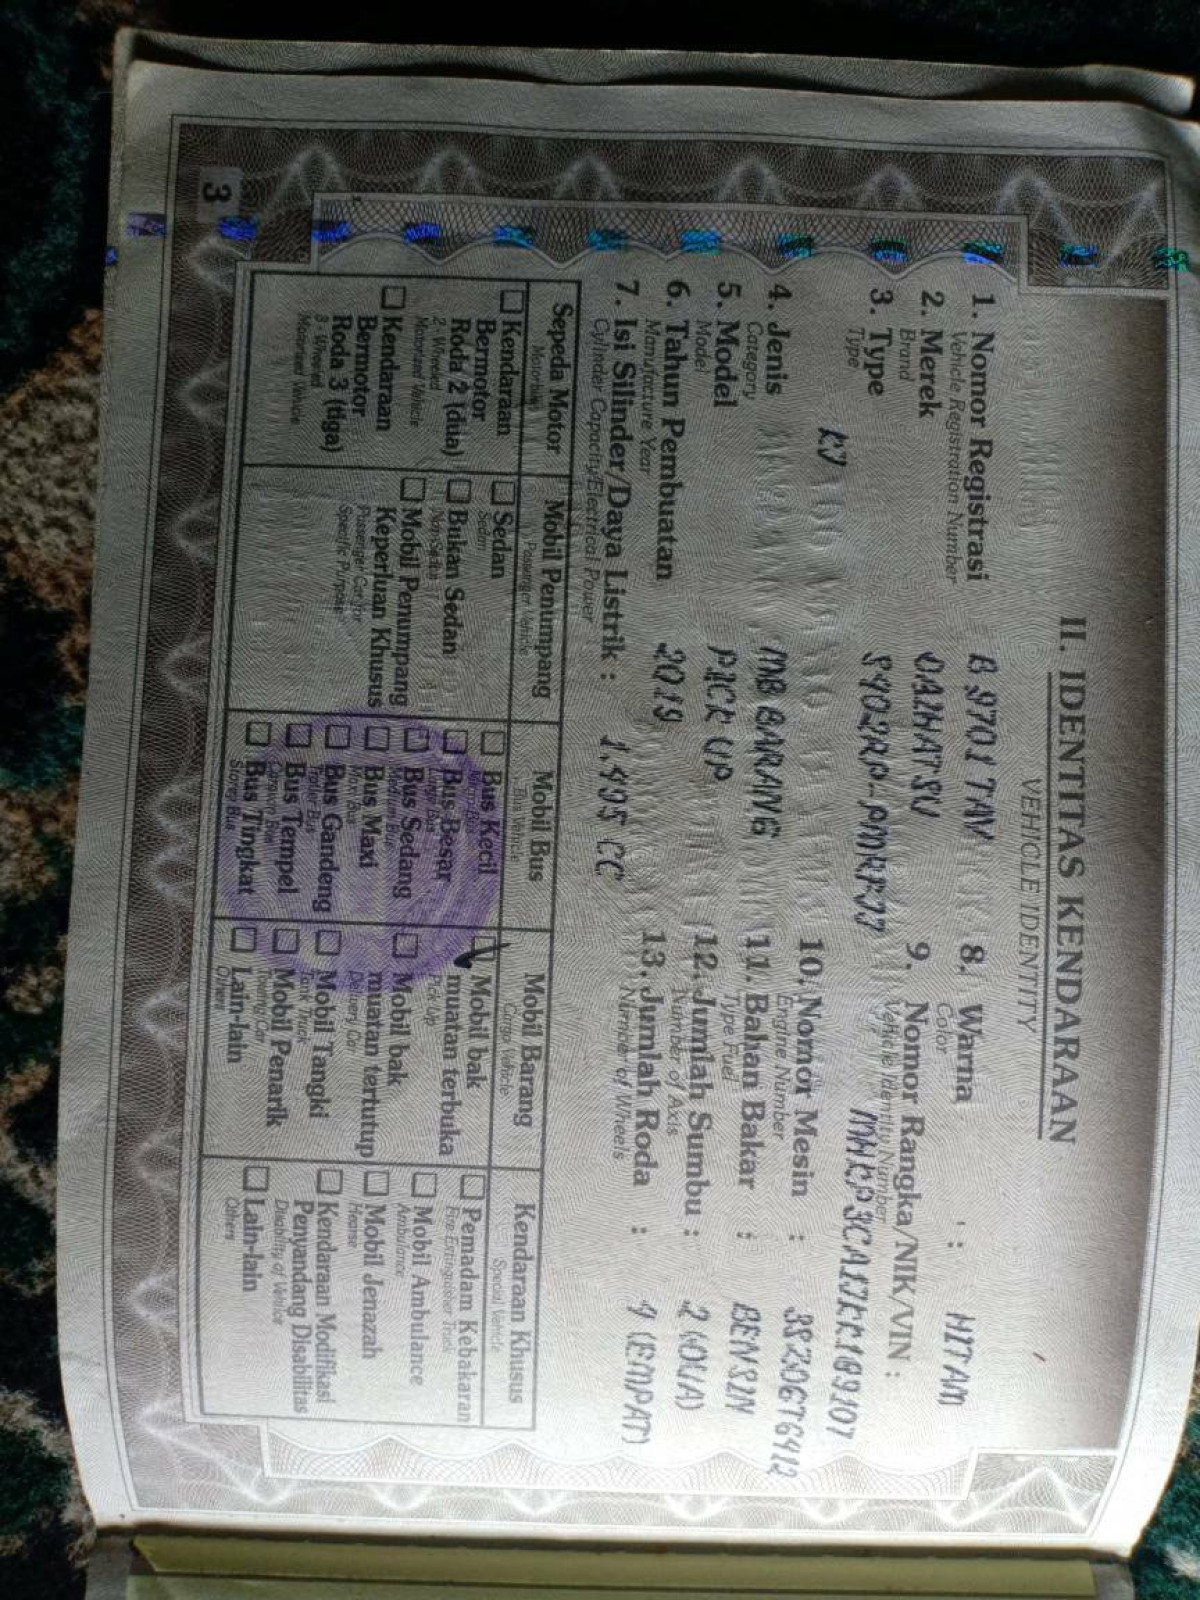 II. IDENTITAS KENDARAAN
VEHICLE IDENTITY
1. Nomor Registrasi B 9701 TAN
Vehicle Registration Number
2. Merek DAIHATSU
Brand
3. Type S402RP-PMRFJJ
Type
KJ
4. Jenis MB BARANG
Category
5. Model PICK UP
Model
6. Tahun Pembuatan 2019
Manufacture Year
7. Isi Silinder/Daya Listrik : 1.495 CC
Cylinder Capacity/Electrical Power
8. Warna : HITAM
Color
9. Nomor Rangka/NIK/VIN :
Vehicle Identity Number
MHKP3CA1JKK189107
10. Nomor Mesin :
Engine Number
11. Bahan Bakar : BENSIN
Type Fuel
12. Jumlah Sumbu : 2 (DUA)
Number of Axis
13. Jumlah Roda : 4 (EMPAT)
Number of Wheels
Sepeda Motor
Motorbike
Kendaraan
Bermotor
Roda 2 (dua)
2-Wheeled
Motorized Vehicle
Kendaraan
Bermotor
Roda 3 (tiga)
3-Wheeled
Motorized Vehicle
Mobil Penumpang
Passenger Vehicle
Sedan
Sedan
Bukan Sedan
Mobil Penumpang
Keperluan Khusus
Passenger Car for
Specific Purpose
Mobil Bus
Bus Vehicle
Bus Kecil
Bus Besar
Bus Sedang
Medium Bus
Bus Maxi
Maxi Bus
Bus Gandeng
Bus Tempel
Bus Tingkat
Storey Bus
Mobil Barang
Cargo Vehicle
Mobil bak
muatan terbuka
Pick Up
Mobil bak
muatan tertutup
Delivery Car
Mobil Tangki
Tank Truck
Mobil Penarik
Towing Car
Lain-lain
Others
Kendaraan Khusus
Special Vehicle
Pemadam Kebakaran
Fire Extinguisher Truck
Mobil Ambulance
Ambulance
Mobil Jenazah
Hearse
Kendaraan Modifikasi
Penyandang Disabilitas
Disability of Vehicle
Lain-lain
Others
3